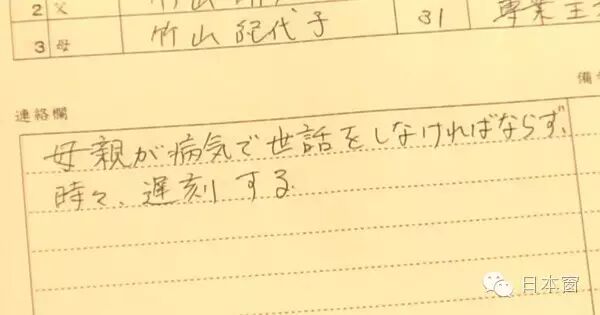 2 父 竹山
3 母 竹山 紀代子 31 専業主
連絡欄
備
母親が病気で世話をしなければならず、
時々、遅刻する
日本窗